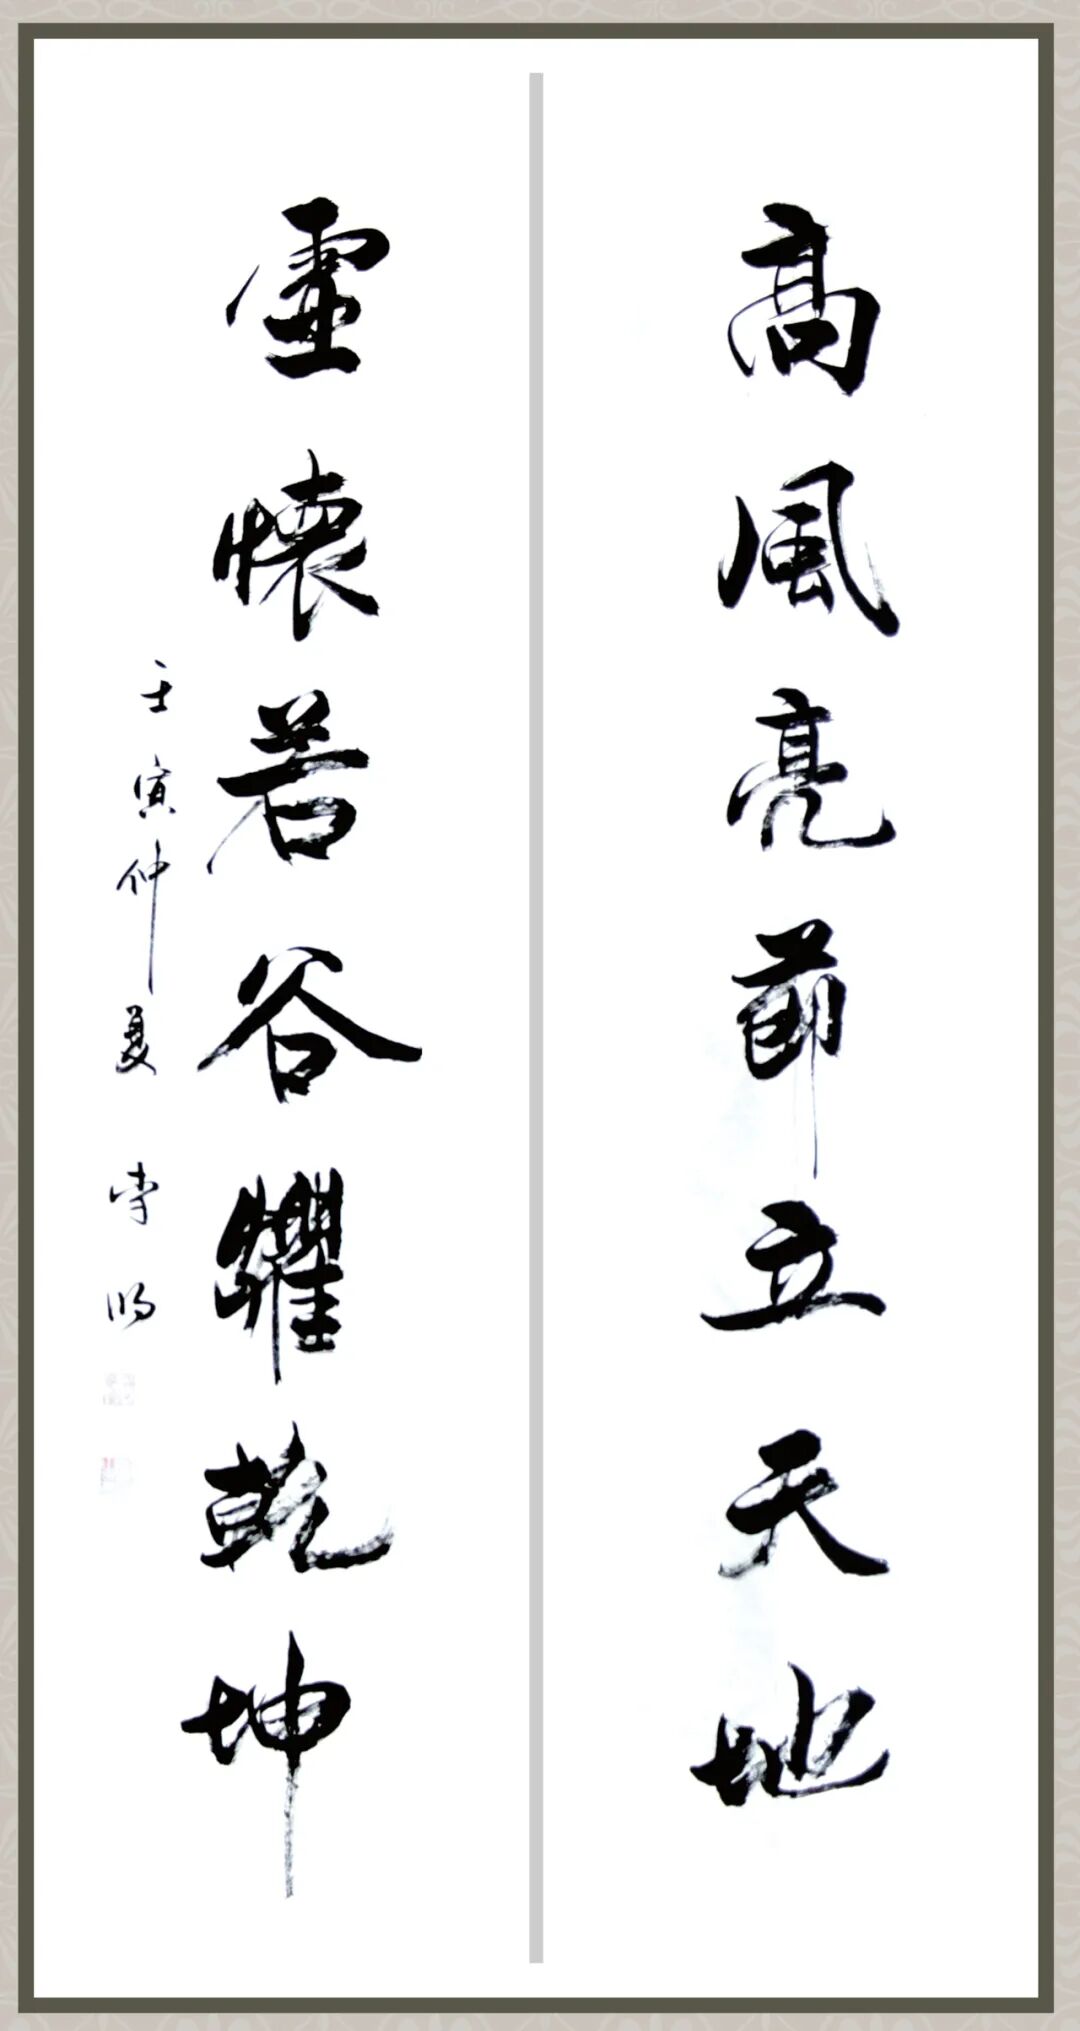 高風亮節立天地
虛懷若谷耀乾坤
壬寅仲夏 李明